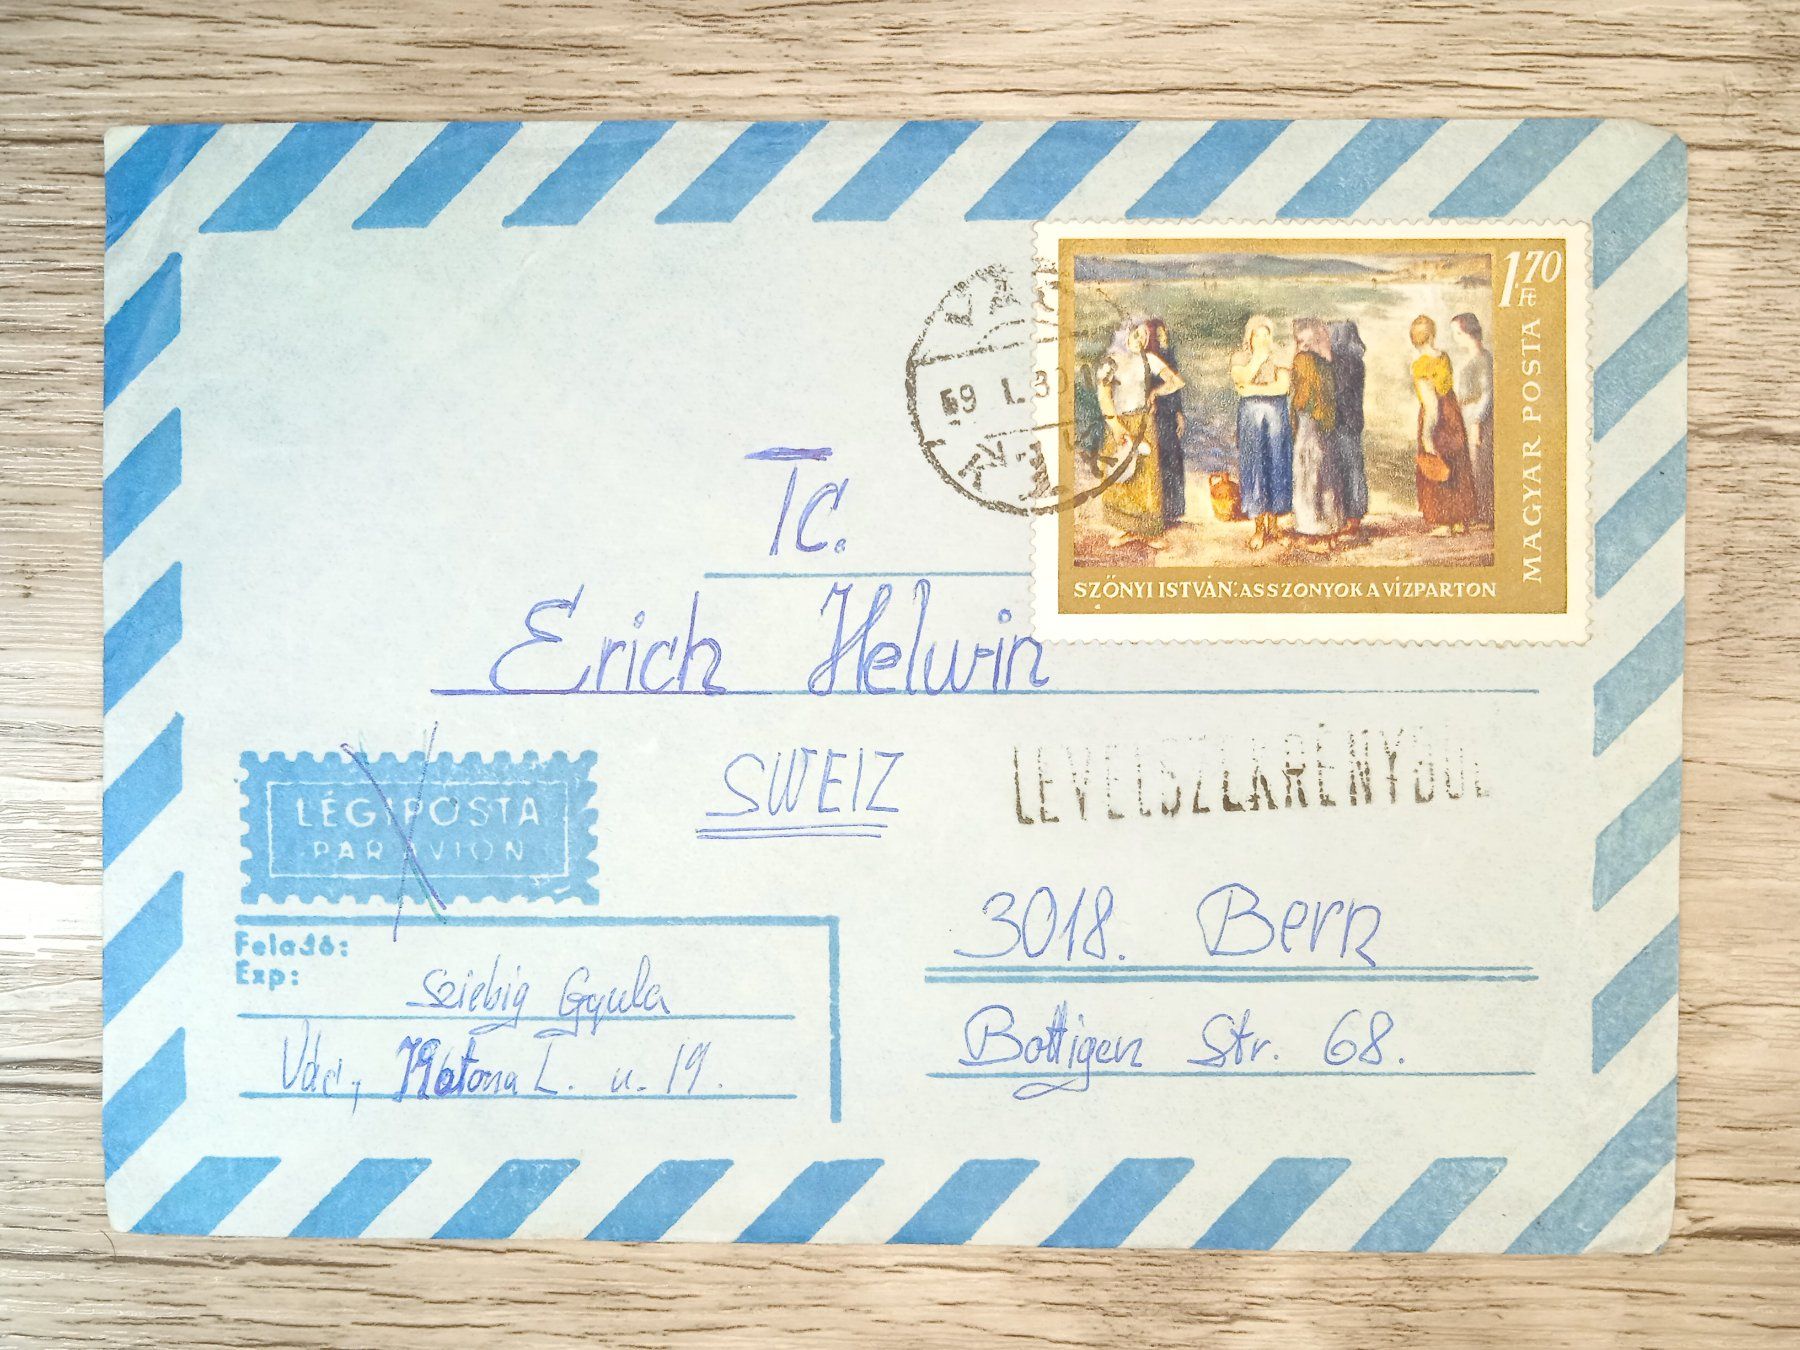 1.70
Ft
MAGYAR POSTA
SZŐNYI ISTVÁN: ASSZONYOK A VÍZPARTON
69 I.
Tc.
Erich Helwin
SWEIZ
LEVÉLSZEKRÉNYBŐL
LÉGIPOSTA
PAR AVION
3018. Bern
Bottigen Str. 68.
Feladó:
Exp:
Sziebig Gyula
Vác, Katona L. u. 19.